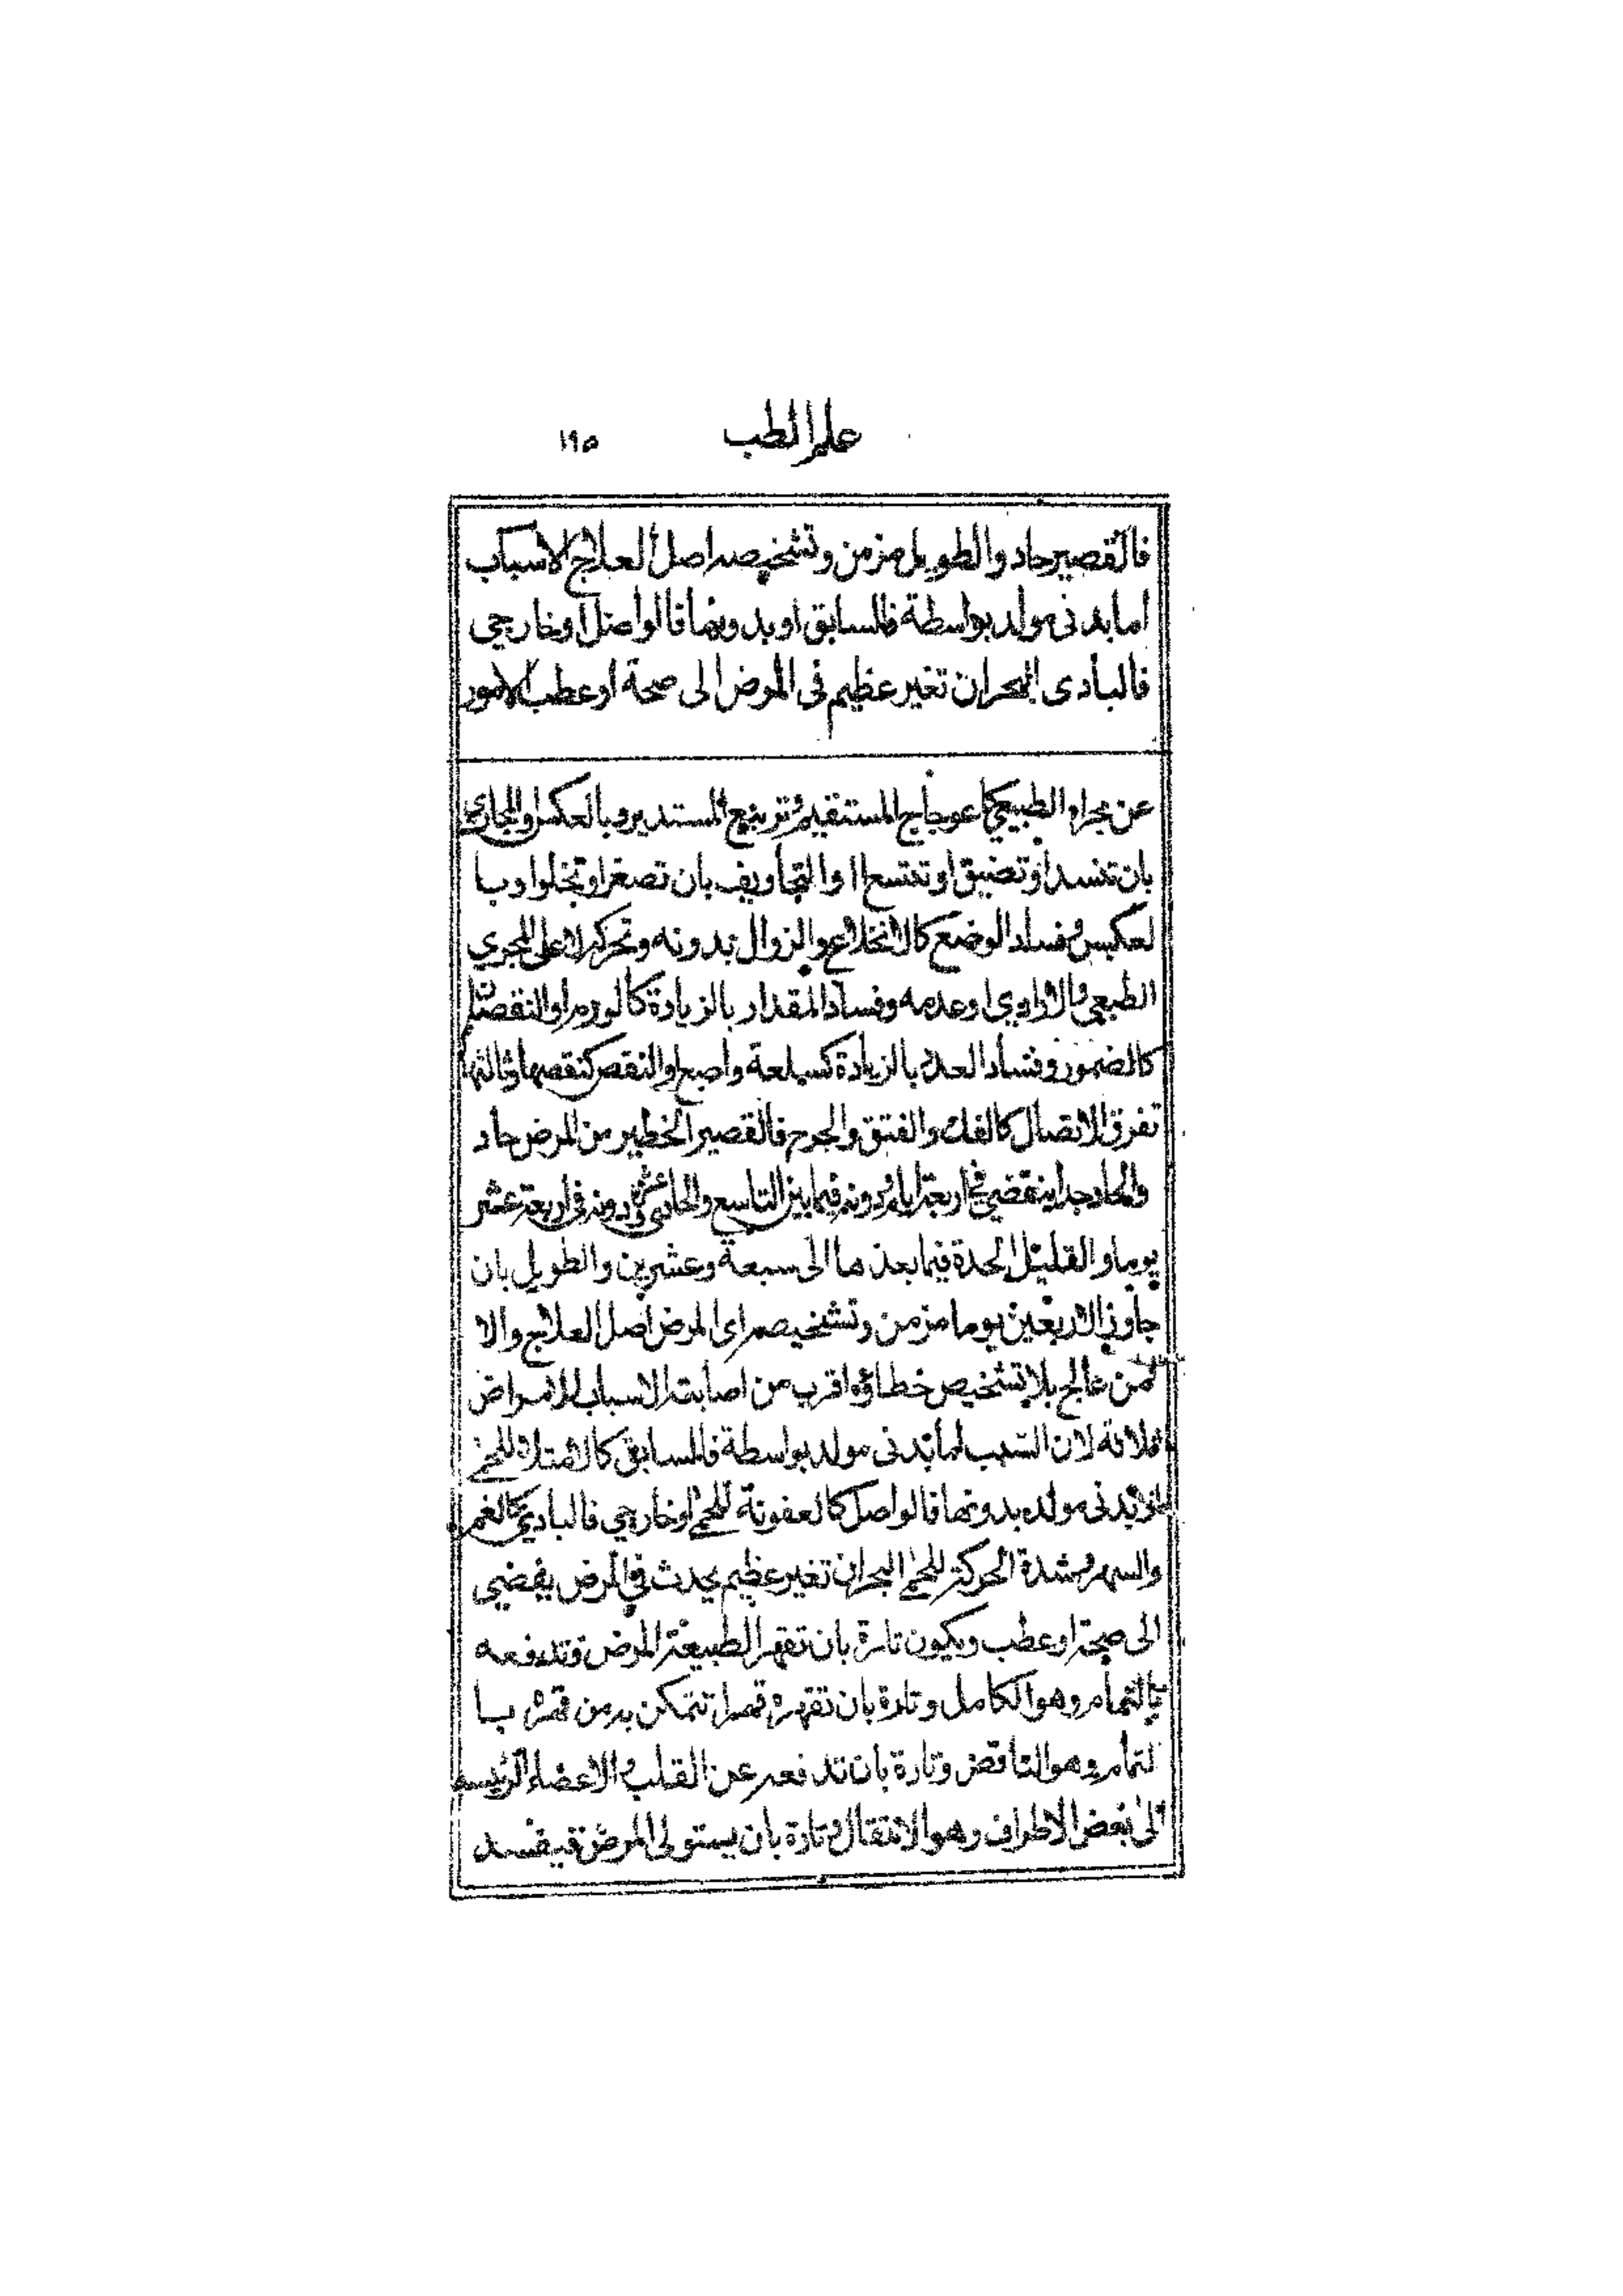 علم الطب ١٩٥
فالقصير حاد والطويل مزمن وتشخيصه اصل العلاج الاسباب
اما بدنى مولد بواسطة فالسابق او بدونها فالواصل او خارجي
فالبادى البحران تغير عظيم فى المرض الى صحة او عطب الامور
عن مجراه الطبيعي كاعوجاج المستقيم وتربيع المستدير وبالعكس والمجارى
بان تنسد او تضيق او تتسع والتجاويف بان تصغر او تخلو او با
لعكس وفساد الوضع كالانخلاع والزوال بدونه وتحركه لا على المجرى
الطبعي والارادي او عدمه وفساد المقدار بالزيادة كالورم او النقصان
كالضمور وفساد العدد بالزيادة كسلعة واصبع او النقص كنقصها وثالثها
تفرق الاتصال كالفك والفتق والجرح فالقصير الخطير من المرض حاد
والحاد جدا ينقضي فى اربعة ايام ودونه فيما بين التاسع والحادى عشر ودونه فى اربعة عشر
يوما والقليل الحدة فيما بعدها الى سبعة وعشرين والطويل بان
جاوز الاربعين يوما مزمن وتشخيصه اى المرض اصل العلاج والا
فمن عالج بلا تشخيص خطاؤه اقرب من اصابته الاسباب للامراض
ثلاثة لان السبب اما بدنى مولد بواسطة فالسابق كالامتلاء للحمى
او بدنى مولده بدونها فالواصل كالعفونة للحمى او خارجي فالبادي كالغم
والسهر وشدة الحركة للحمى البحران تغير عظيم يحدث فى المرض يفضي
الى صحة او عطب ويكون تارة بان تقهر الطبيعة المرض وتدفعه
بالتمام وهو الكامل وتارة بان تقهره قهرا تتمكن به من قهره با
لتمام وهو الناقص وتارة بان تدفعه عن القلب والاعضاء الرئيسه
الى بعض الاطراف وهو الانتقال وتارة بان يستولى المرض فيفسد